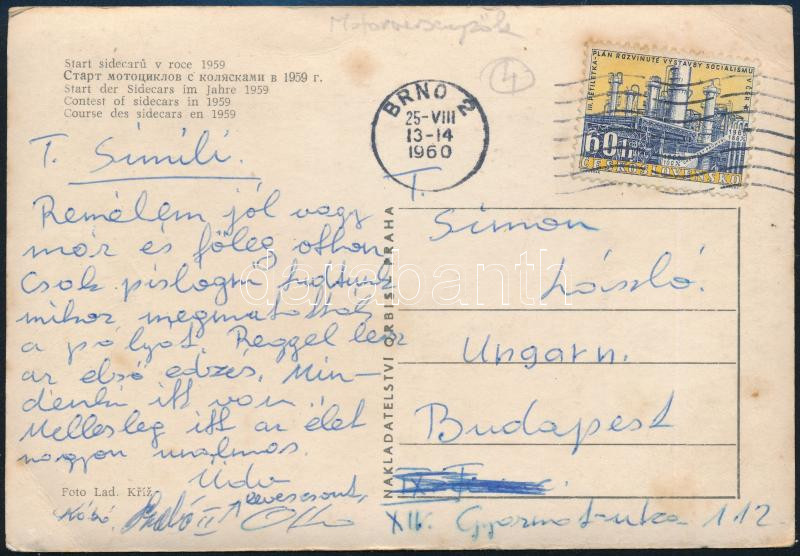 Motorversenyzők
4
Start sidecarů v roce 1959
Старт мотоциклов с колясками в 1959 г.
Start der Sidecars im Jahre 1959
Contest of sidecars in 1959
Course des sidecars en 1959
BRNO 2
25-VIII
13-14
1960
III. PĚTILETKA-PLÁN ROZVINUTÉ VÝSTAVBY SOCIALISMU V ČSR
60 h
ČESKOSLOVENSKO
T. Simili.
Remélem jól vagy
már és főleg othon
Csak pislogni tudtunk
mikor megmutatták
a pályat. Reggel lesz
az első edzés. Min-
denki itt van.
Mellesleg itt az élet
nagyon unalmas.
Üdv
T.
Simon
László.
Ungarn.
Budapest
XII. Gyarmat utca 112.
NAKLADATELSTVÍ ORBIS, PRAHA
Foto Lad. Kříž
Szabó II
darabanth